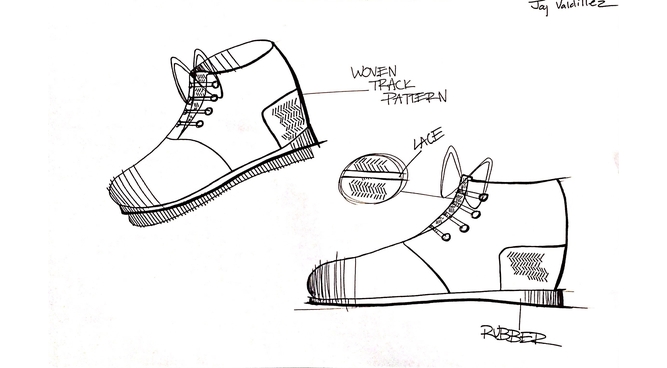 Jay Valdillez
WOVEN
TRACK
PATTERN
LACE
RUBBER